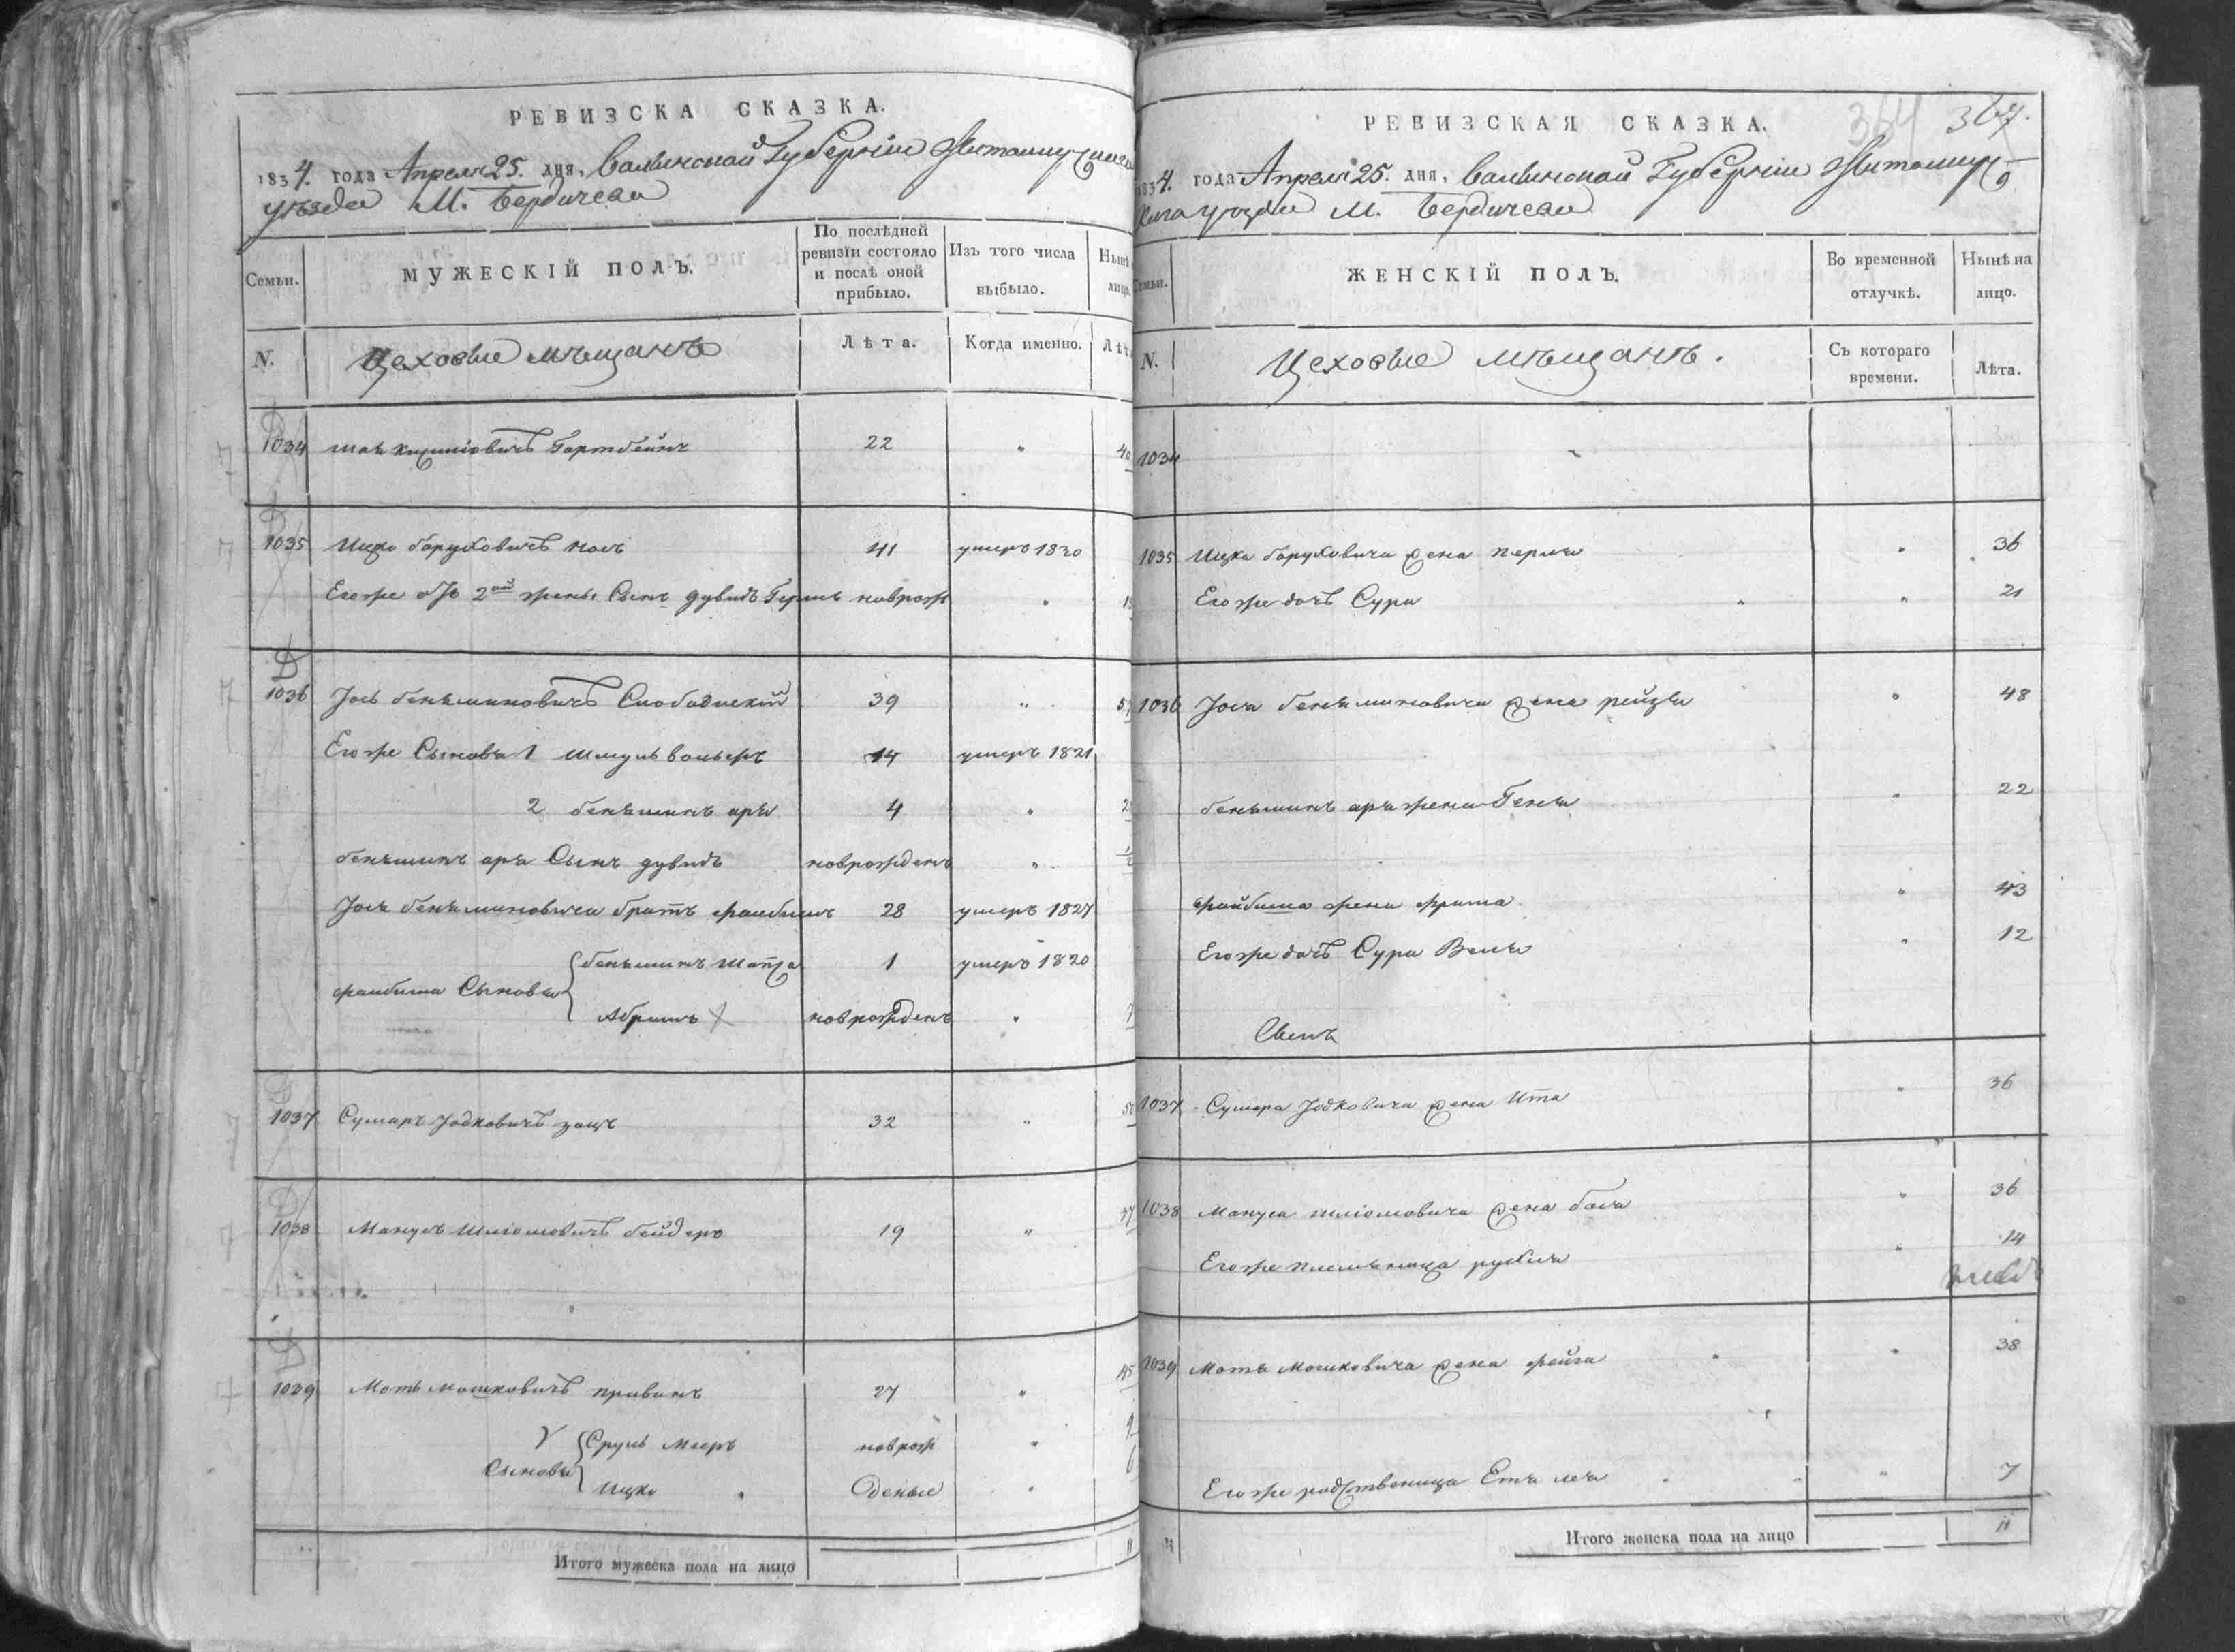 РЕВИЗСКА СКАЗКА.
1834. года Апреля 25. дня, Волынской Губернiи
уезда М. Бердичева
Семьи.
МУЖЕСКIЙ ПОЛЪ.
По послѣдней ревизiи состояло и послѣ оной прибыло.
Изъ того числа выбыло.
N.
Цеховые мѣщанѣ
Лѣта.
Когда именно.
1034 22 " 40
1035 Ицко Боруховичъ 41 умеръ 1830
Егоже отъ 2ой жены Сынъ Дувидъ Гершь новрож "
1036 Iось Беняминовичъ Слободискiй 39 "
Егоже Сыновья 1 Шмуль 14 умеръ 1821
2 Беняминъ Аря 4 "
Беняминъ Аря Сынъ Дувидъ новрожденъ "
Iося Беняминовича братъ Фаибишъ 28 умеръ 1827
Фаибиша Сыновья
Беняминъ 1 умеръ 1820
Абрамъ новрожденъ "
1037 Сумеръ Iоdковичъ 32 "
1038 Манусъ Шлiомовичъ Бейдеръ 19 "
1039 Мотя Мошковичъ 27 " 45
Сыновья
Сруль Мееръ новрож " 9
Ицко деные " 6
Итого мужеска пола на лицо 11
РЕВИЗСКАЯ СКАЗКА.
364 367.
1834. года Апреля 25. дня, Волынской Губернiи Житомир-
скаго уезда М. Бердичева
Семьи.
ЖЕНСКIЙ ПОЛЪ.
Во временной отлучкѣ.
Нынѣ на лицо.
N.
Цеховые мѣщанѣ.
Съ котораго времени.
Лѣта.
1034
1035 Ицка Боруховича жена Перля " 36
Егоже дочь Сура " 21
1036 Iося Беняминовича жена Рейзя " 48
Беняминъ Аря жена Геня " 22
Файбиша жена Фрима " 43
Егоже дочь Сура Веля " 12
1037 Сумера Iодковича жена Ита " 36
1038 Мануса Шлiомовича жена Бася " 36
Егоже племяница Рухля " 14
1039 Мотя Мошковича жена Фейга " 38
Егоже родственица Етя Лея " 7
Итого женска пола на лицо 11